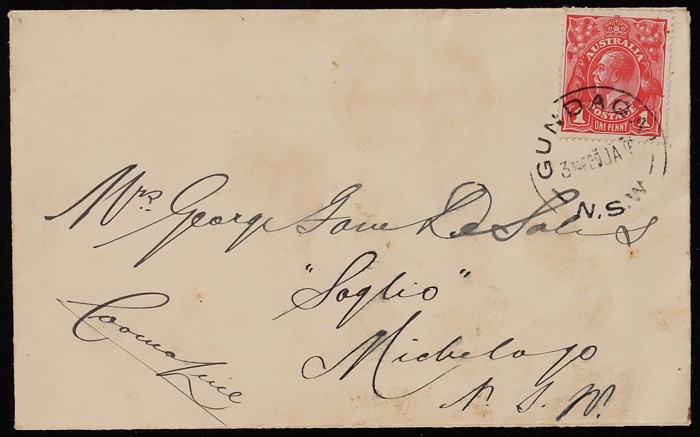 AUSTRALIA
POSTAGE
1 ONE PENNY 1
GUNDAGAI
20 JA
N.S.W
Mrs. George Jane De Salis
"Soglio"
Michelago
N. S. W.
Cooma Line